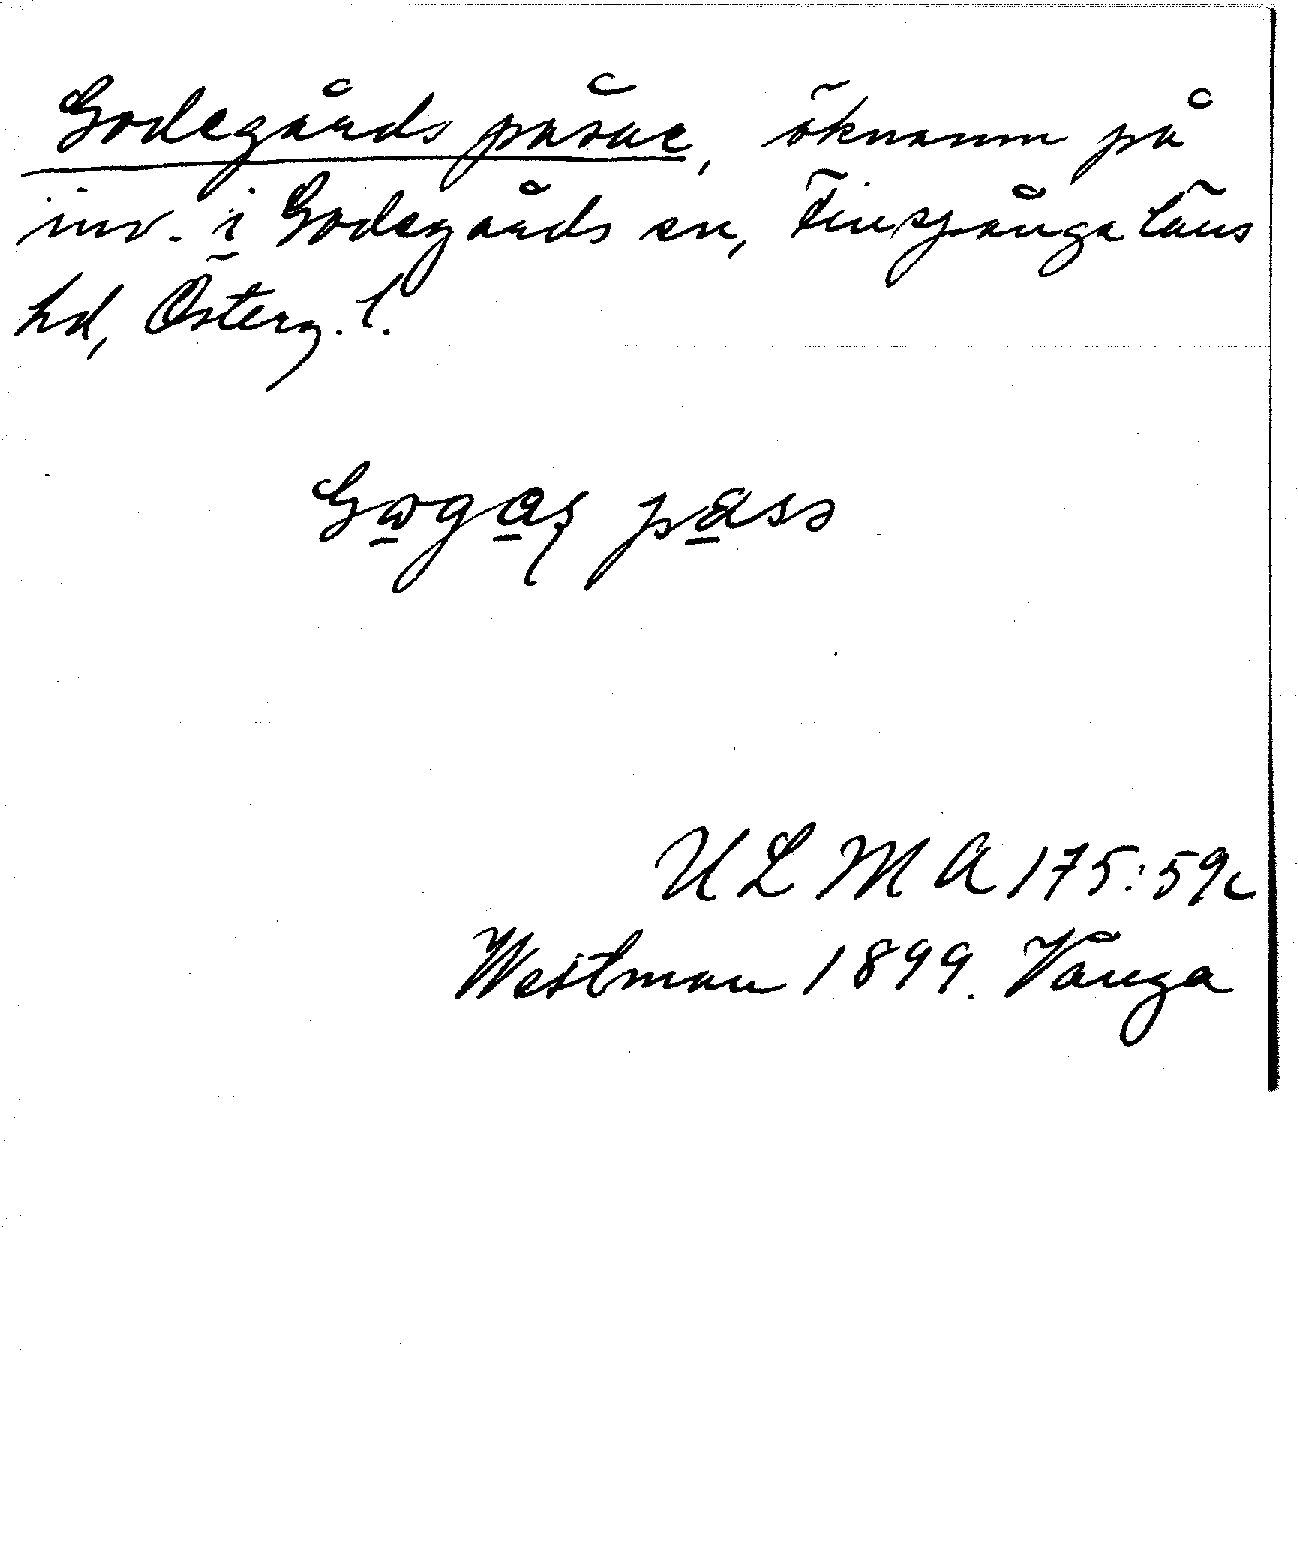 Godegårds påsar, öknamn på
inv. i Godegårds sn, Finspånga läns
hd, Österg. l.
Gωgaʂ påss
ULMA 175:59c
Westman 1899. Vånga